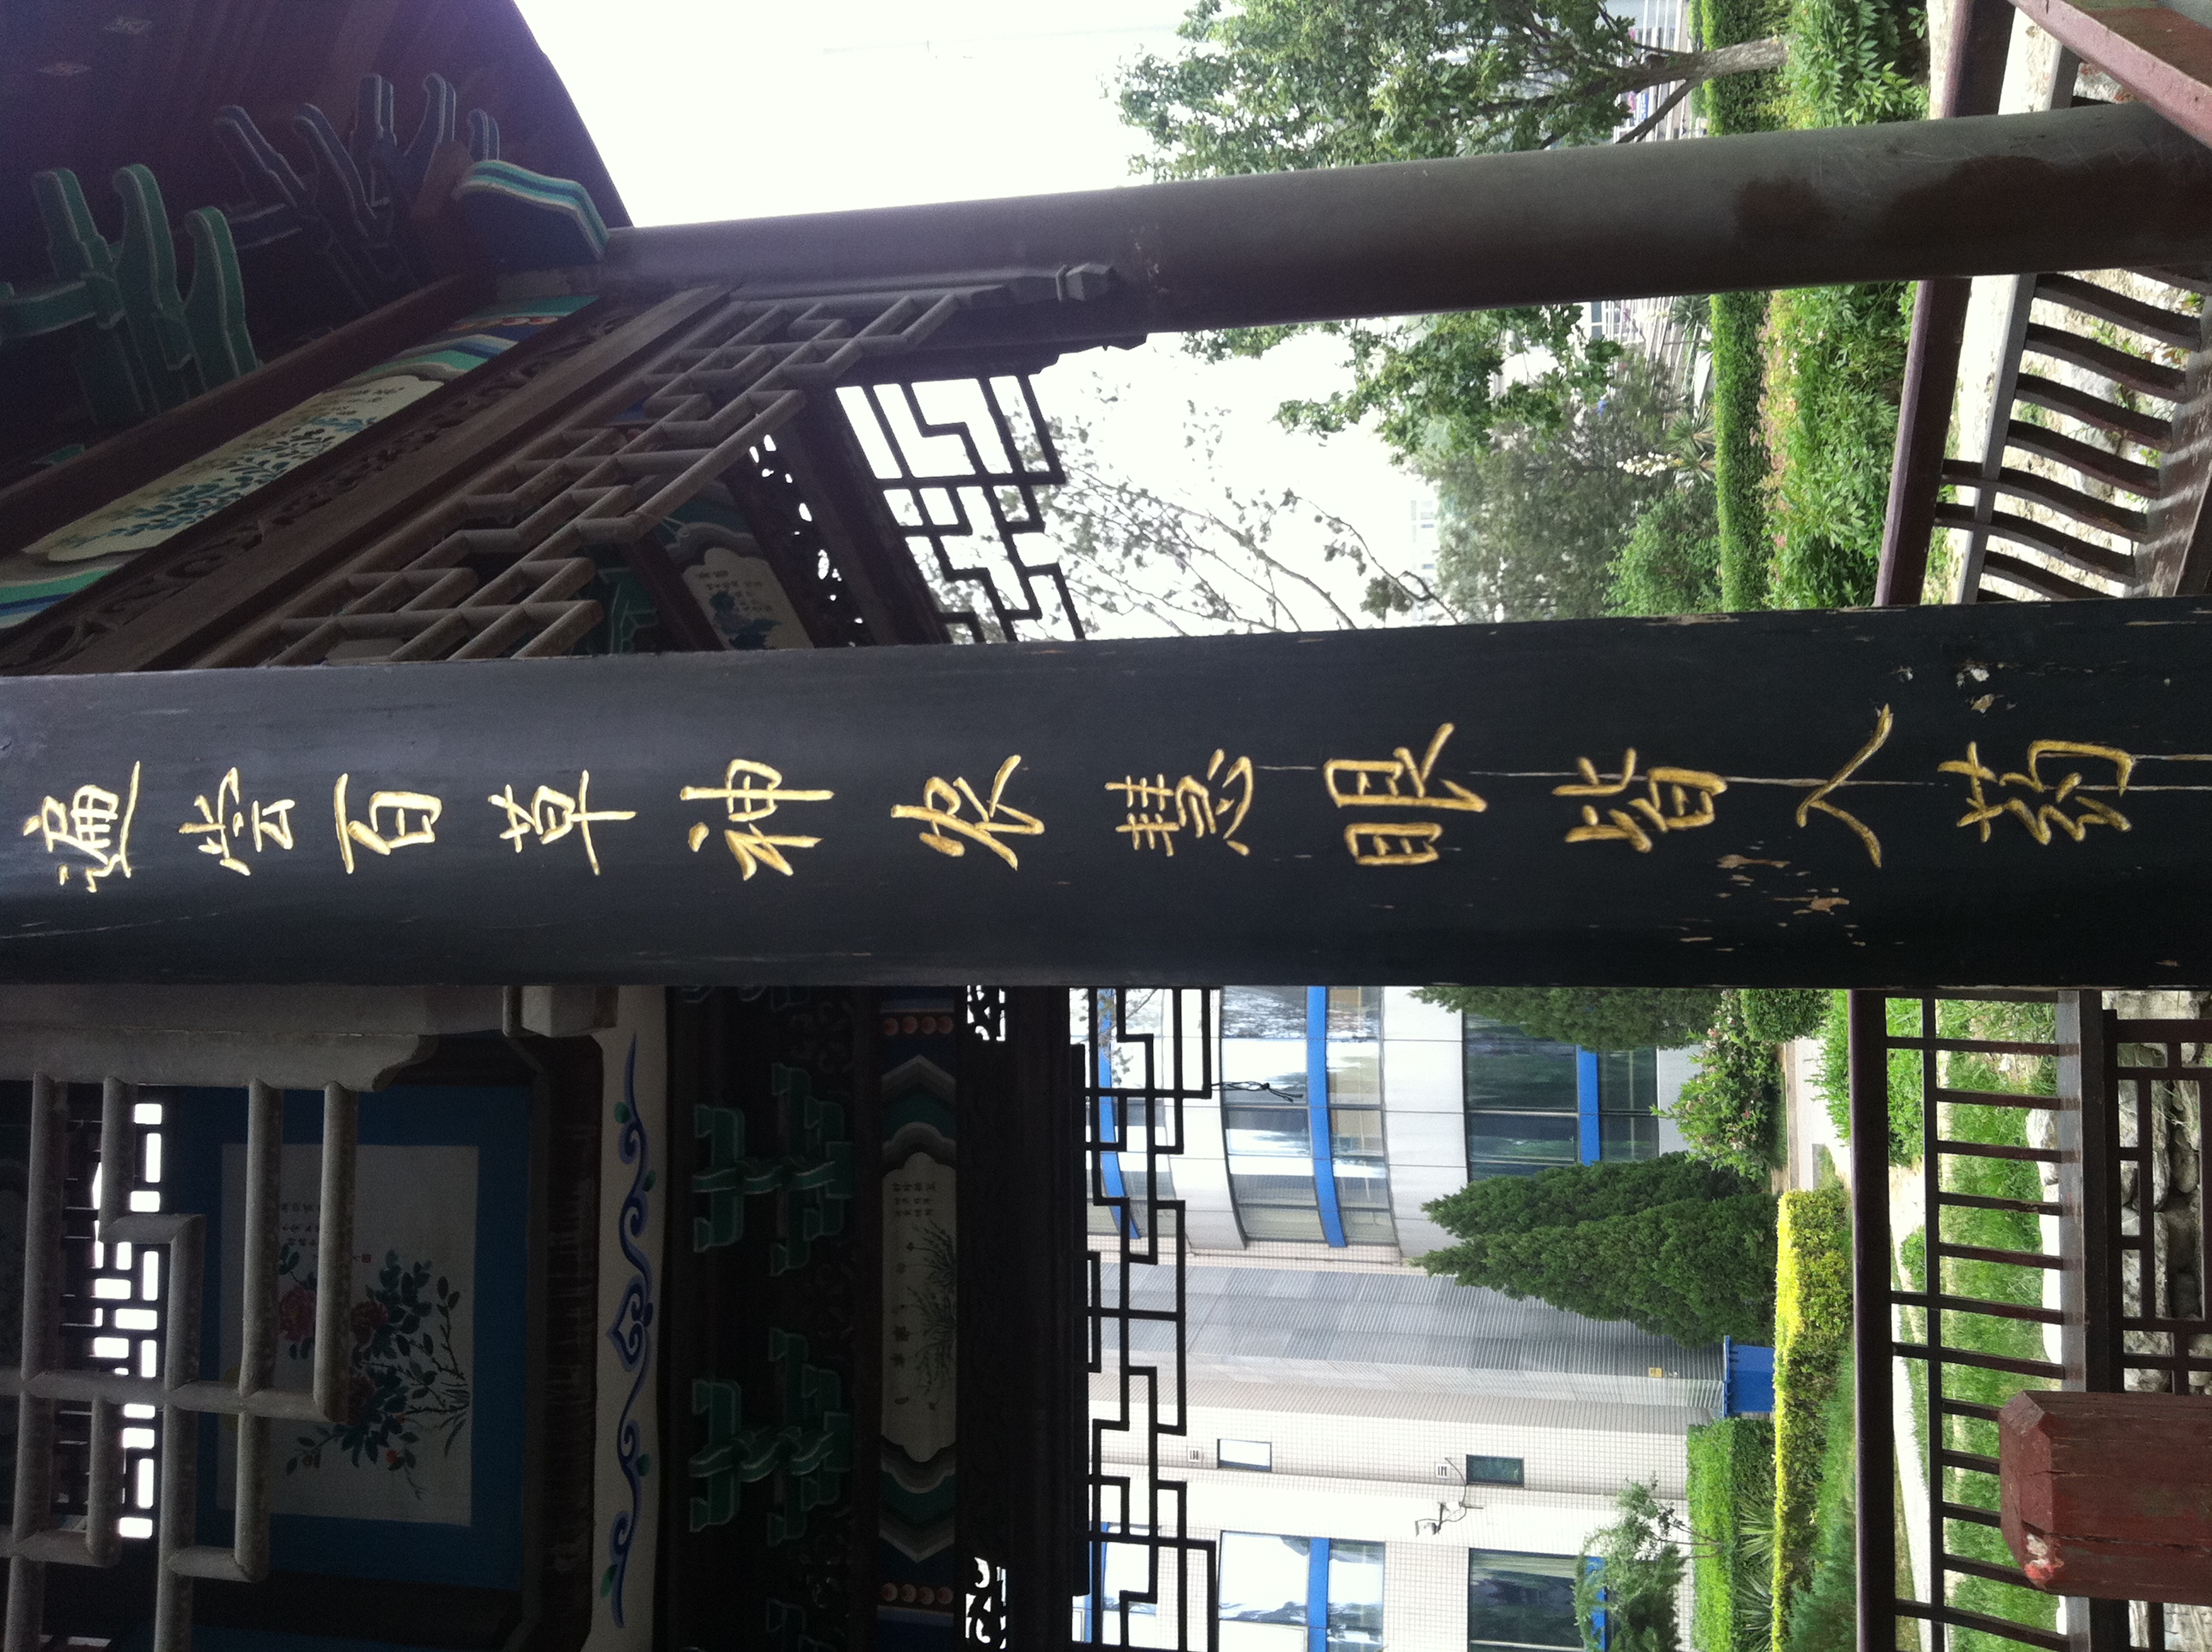 遍尝百草神农慧眼皆入药